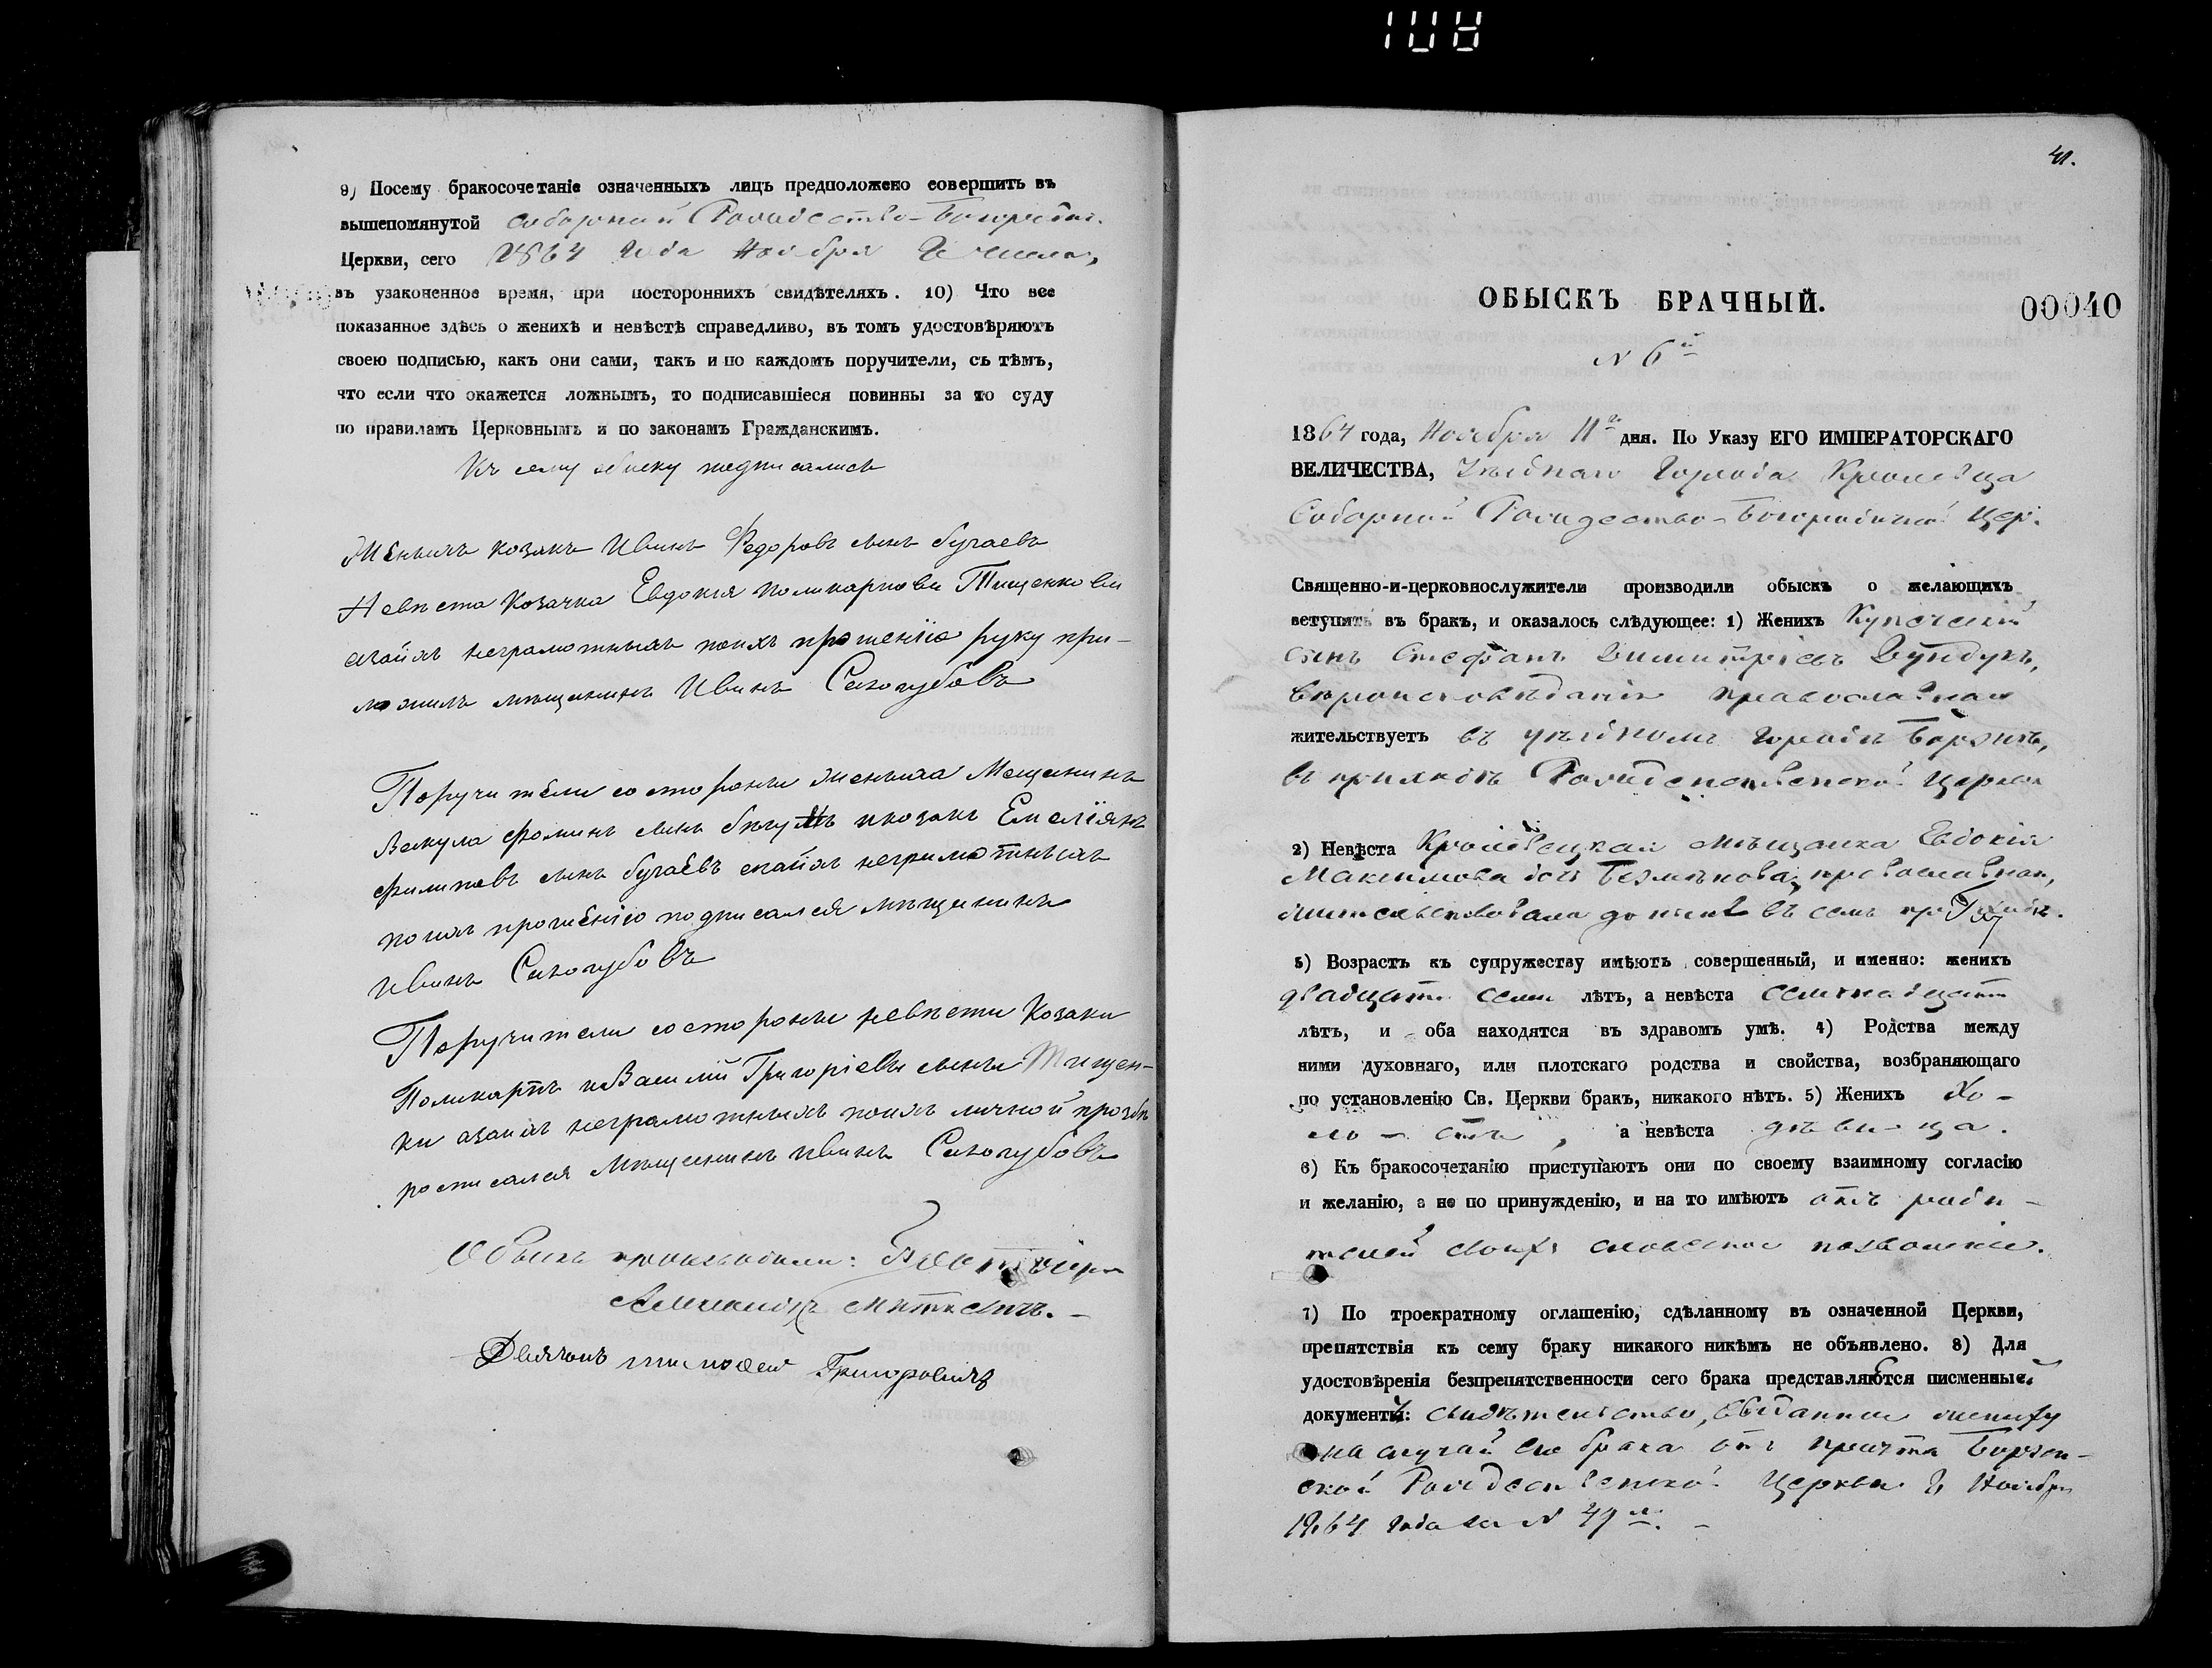 108
9) Посему бракосочетаніе означенныхъ лицъ предположено совершить въ
вышепомянутой соборной Рождество-Богородич.
Церкви, сего 1864 года Ноября числа,
въ узаконенное время, при постороннихъ свидѣтеляхъ. 10) Что все
показанное здѣсь о женихѣ и невѣстѣ справедливо, въ томъ удостовѣряютъ
своею подписью, какъ они сами, такъ и по каждомъ поручители, съ тѣмъ,
что если что окажется ложнымъ, то подписавшіеся повинны за то суду
по правиламъ Церковнымъ и по законамъ Гражданскимъ.
Къ сему обыску подписались
Женихъ козакъ Иванъ Федоровъ сынъ бугаевъ
Невѣста козачка Евдокія поликарпова Тищенкова
неграмотныхъ поихъ прошенію руку при-
ложилъ мѣщанинъ Иванъ Сахолубовъ
Поручители состороны жениха Мещанинъ
Вакула фоминъ сынъ икозакъ Емеліянъ
филиповъ сынъ бугаевъ неграмотныхъ
поихъ прошенію подписался мѣщанинъ
Иванъ Сахолубовъ
Поручители состороны невѣсты Козаки
Поликарпъ иВасилій Григоріевы сыны Тищен-
ки азаихъ неграмотныхъ поихъ личной прозбѣ
росписался Мѣщанинъ иванъ Сахолубовъ
Обыскъ производили:
Дьячокъ тимофей Григоровичъ
41.
ОБЫСКЪ БРАЧНЫЙ.
00040
N 6й
1864 года, Ноября 11го дня. По Указу ЕГО ИМПЕРАТОРСКАГО
ВЕЛИЧЕСТВА, Уѣзднаго Города Кролевца
Соборной Рождество-Богородичной Цер.
Священно-и-церковнослужители производили обыскъ о желающихъ
вступить въ бракъ, и оказалось слѣдующее: 1) Женихъ Купеческій
сынъ Стефанъ Димитріевъ Бундукъ,
вѣроисповѣданія православнаго
жительствуетъ въ уѣздномъ городѣ Борзнѣ,
въ приходѣ Рождественской церкви
2) Невѣста Кролевецкая мѣщанка Евдокія
Максимова православная,
жительствовала до нынѣ въ семъ приходѣ.
3) Возрастъ къ супружеству имѣютъ совершенный, и именно: женихъ
двадцать семь лѣтъ, а невѣста семнадцать
лѣтъ, и оба находятся въ здравомъ умѣ. 4) Родства между
ними духовнаго, или плотскаго родства и свойства, возбраняющаго
по установленію Св. Церкви бракъ, никакого нѣтъ. 5) Женихъ Хо-
ло-стъ, а невѣста дѣви-ца.
6) Къ бракосочетанію приступаютъ они по своему взаимному согласію
и желанію, а не по принужденію, и на то имѣютъ отъ роди-
телей своихъ словесное позволеніе.
7) По троекратному оглашенію, сдѣланному въ означенной Церкви,
препятствія къ сему браку никакого никѣмъ не объявлено. 8) Для
удостовѣренія безпрепятственности сего брака представляются писменные
документы: свидѣтельство, выданное жениху
на случай сго брака отъ причта Борзен-
ской Рождественской Церкви Ноября
1864 года за N 49м.